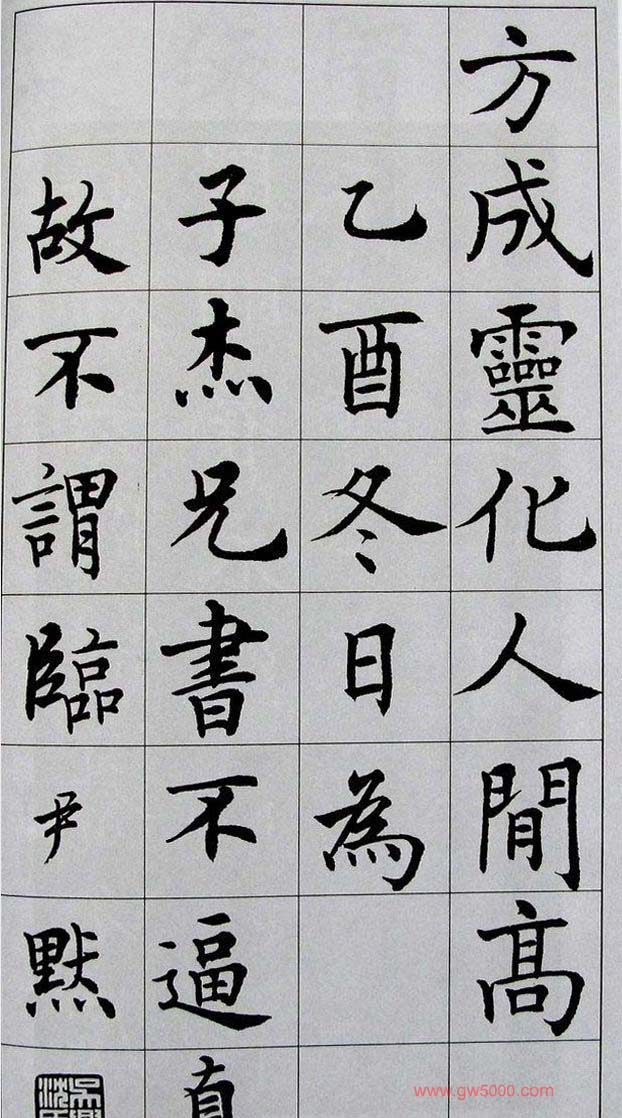 方成靈化人閒高
乙酉冬日為
子杰兄書不逼
故不謂臨尹默
www.gw5000.com